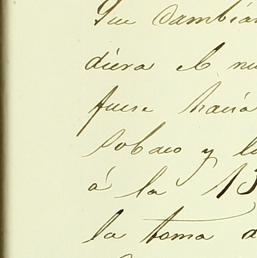 Que cambiar
diera el nu
fuese hacia
sobaco y la
á la 13
la toma d